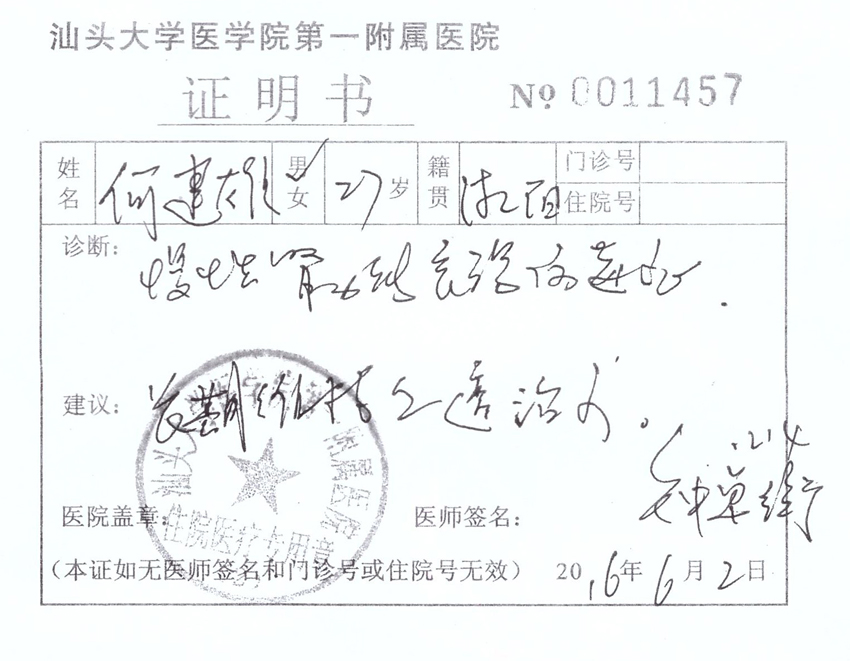 汕头大学医学院第一附属医院
证明书 № 0011457
姓名 何建雄 男 女 27岁 籍贯 门诊号 住院号
诊断:
慢性肾功能衰竭尿毒症.
建议: 长期维持血透治疗。
附属医院
住院医疗专用章
医院盖章: 医师签名:
(本证如无医师签名和门诊号或住院号无效) 2016年6月2日